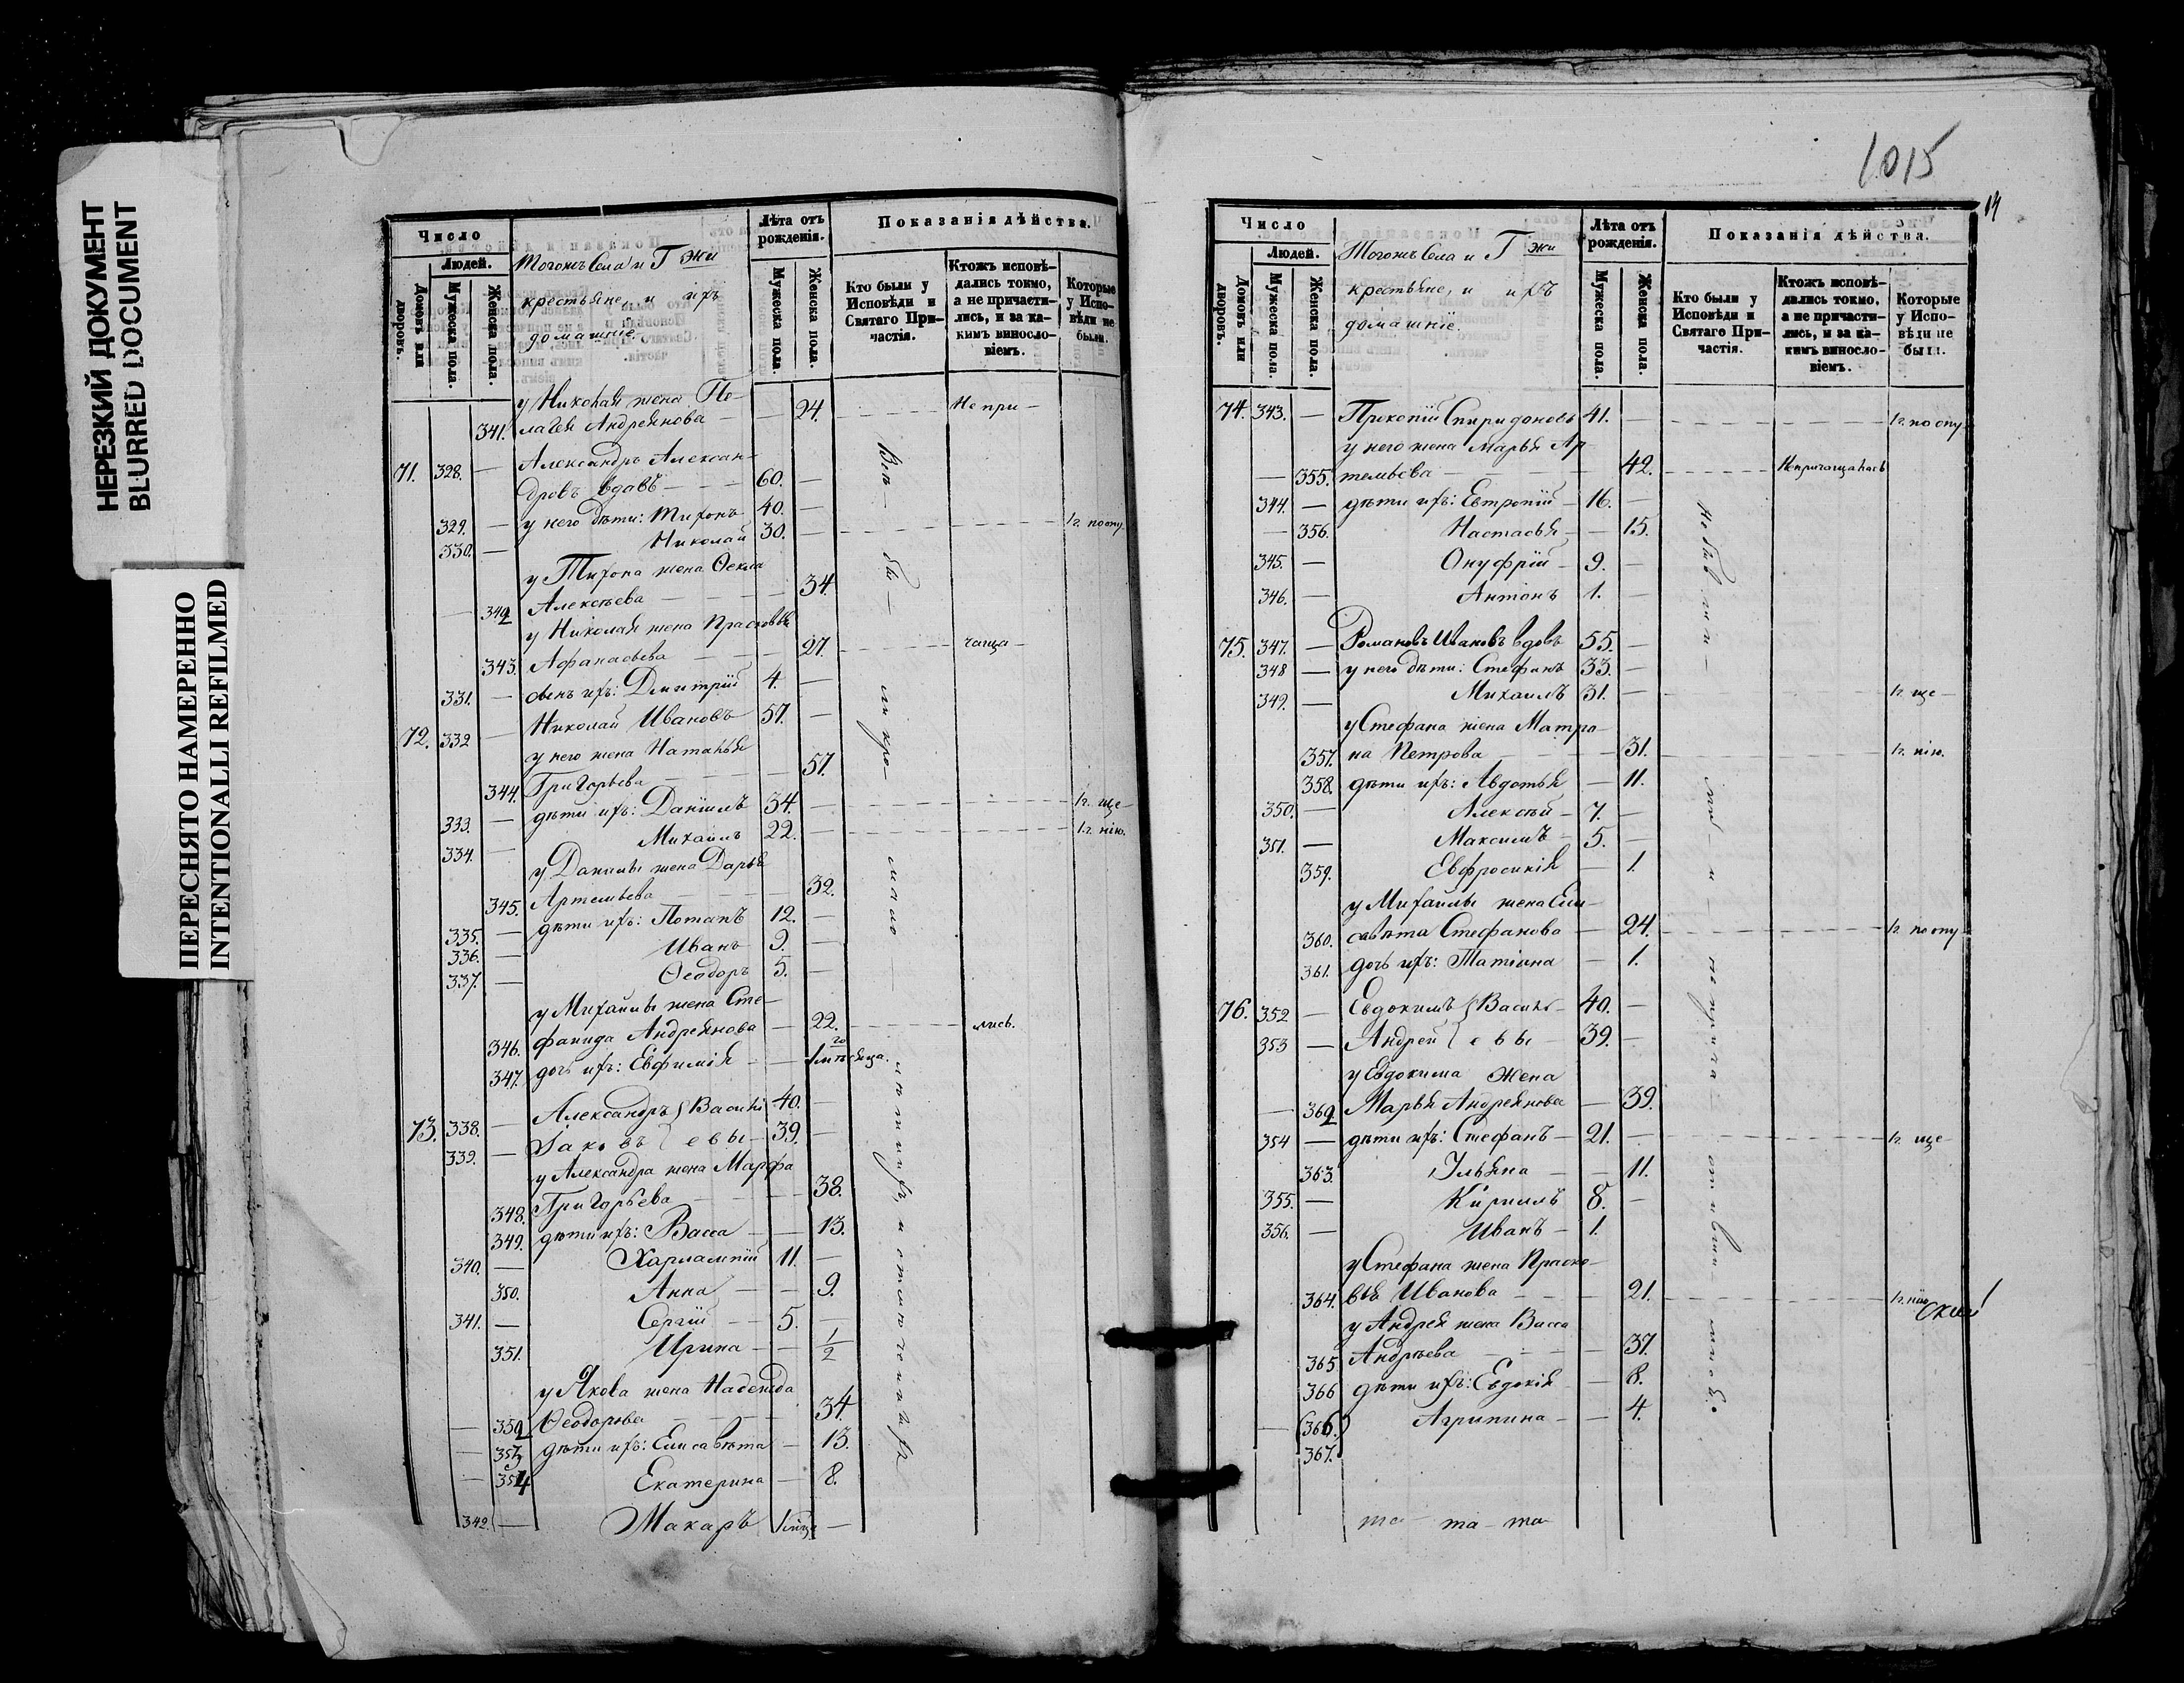 НЕРЕЗКИЙ ДОКУМЕНТ
BLURRED DOCUMENT
ПЕРЕСНЯТО НАМЕРЕННО
INTENTIONALLI REFILMED
Число
Людей.
Домовъ или дворовъ.
Мужеска пола.
Женска пола.
Тогожъ Села и Г жи
крестьяне, и ихъ
домашніе.
Лѣта отъ рожденія.
Мужеска пола.
Женска пола.
Показанія дѣйства.
Кто были у Исповѣди и Святаго Причастія.
Ктожъ исповѣдались токмо, а не причастились, и за какимъ винословіемъ.
Которые у Исповѣди не были.
у Николая жена Пе-
341. лагея Андреянова — — 24. Не при-
71. 328. — Александръ Алексан-
дровъ вдовъ — 60. —
329. — у него дѣти: Тихонъ 40. —
330. — Николай 30. — 1 г. по опу-
у Тихона жена Ѳекла
342 Алексѣева — 34.
у Николая жена Прасковья
343. Афанасьева — 27. чаща-
331. — сынъ ихъ: Дмитрій 4. —
72. 332 — Николай Ивановъ 57. —
у него жена Наталья
344. Григорьева — 57.
333. — дѣти ихъ: Даніилъ 34. — 1 г. ще-
334. — Михаилъ 22. — 1 г. нію.
у Даніилы жена Дарья
345. Артемьева — 32.
335. — дѣти ихъ: Потапъ 12. —
336. — Иванъ 9. —
337. — Ѳеодоръ 5. —
у Михаилы жена Сте-
346. фанида Андреянова — 22. лись.
347. дочь ихъ: Евфимія — 1го мѣсяца.
73. 338. — Александръ } Василь 40. —
339. — Іаковъ } евы — 39. —
у Александра жена Марфа
348. Григорьева — 38.
349. дѣти ихъ: Васса — 13.
340. — Харлампій 11. —
350. Анна — 9.
341. — Сергій — 5. —
351. Ирина — 1/2
у Якова жена Надежда
352 Ѳеодорова 34.
353 дѣти ихъ: Елисавѣта — 13.
354 Екатерина — 8.
342. — Макаръ
Всѣ- бы- ли кро-
1015
14
Число
Людей.
Домовъ или дворовъ.
Мужеска пола.
Женска пола.
Тогожъ Села и Г жи
крестьяне, и ихъ
домашніе.
Лѣта отъ рожденія.
Мужеска пола.
Женска пола.
Показанія дѣйства.
Кто были у Исповѣди и Святаго Причастія.
Ктожъ исповѣдались токмо, а не причастились, и за какимъ винословіемъ.
Которые у Исповѣди не были.
74. 343. — Прокопій Спиридоновъ 41. — 1 г. по опу-
у него жена Марья Ар
— 355. темьева — 42. Не причащалась
344. — дѣти ихъ: Евтропій — 16. —
— 356. Настасья — 15.
345. — Онуфрій — 9. —
346. — Антонъ 1. —
75. 347. — Романъ Ивановъ вдовъ 55. —
348 — у него дѣти: Стефанъ 33. —
349. — Михаилъ 31. — 1 г. ще-
у Стефана жена Матро-
357. на Петрова — 31. 1 г. нію.
358. дѣти ихъ: Авдотья — 11.
350. — Алексѣй — 7. —
351. — Максимъ — 5. —
359. Евфросинія — 1.
у Михаилы жена Ели-
360. савѣта Стефанова — 24. 1 г. по опу-
361. дочь ихъ: Татіана — 1.
76. 352 — Евдокимъ } Василь 40. —
353 — Андрей } евы — 39. —
у Евдокима жена
— 362 Марья Андреянова — 39.
354 — дѣти ихъ: Стефанъ — 21. — 1 г. ще-
363. Ульяна — 11.
355. — Кирилъ 8. —
356. — Иванъ — 1.
у Стефана жена Праско-
364. вья Иванова — 21. 1 г. нію
у Андрея жена Васса
365 Андреева — 37.
366 дѣти ихъ: Евдокія — 8.
— (366.) Агрипина — 4.
367.
та- та- та-